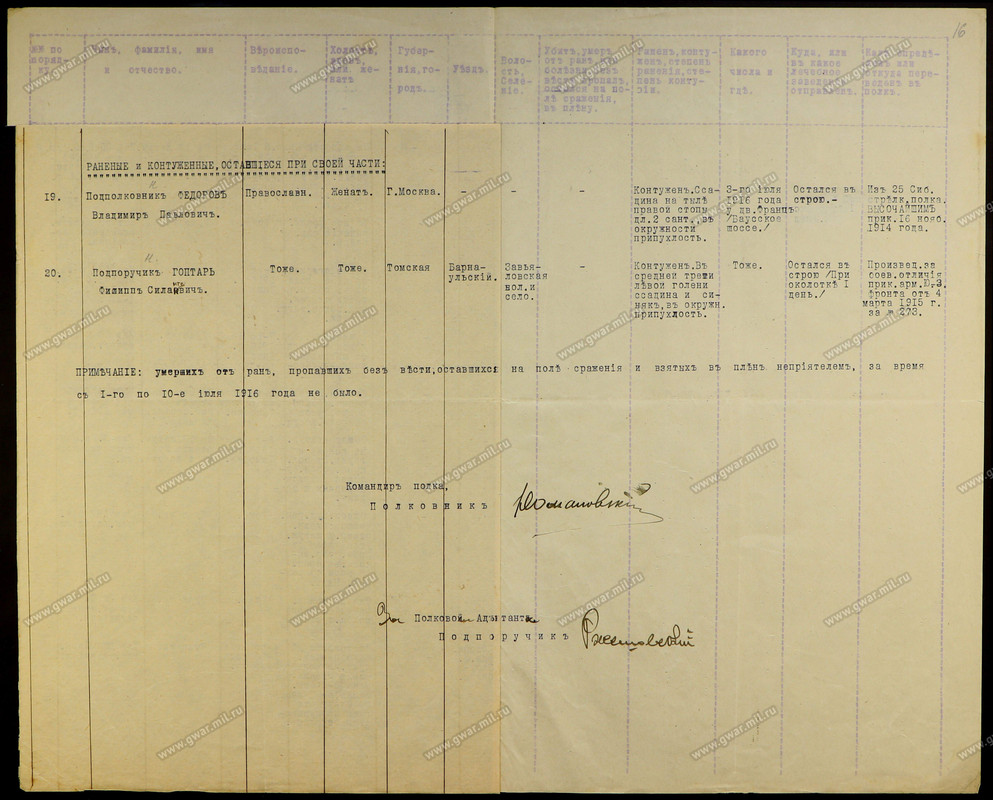 16
№№ по
Чинъ, фамилія, имя
и отчество.
Вѣроиспо-
вѣданіе.
Холостъ,
или же-
натъ
Губер-
нія, го-
родъ.
Уѣздъ.
Воло-
сть,
Селе-
ніе.
Убитъ, умеръ
отъ ранъ,
вѣсти пропалъ,
остался на по-
лѣ сраженія,
въ плѣну.
Раненъ, конту-
женъ, степень
раненія, сте-
пень конту-
зіи.
Какого
числа и
гдѣ.
Куда, или
въ какое
лечебное
заведеніе
отправленъ.
откуда пере-
веденъ въ
полкъ.
РАНЕНЫЕ и КОНТУЖЕННЫЕ, ОСТАВШІЕСЯ ПРИ СВОЕЙ ЧАСТИ:
19.
Подполковникъ ФЕДОРОВЪ
Владимиръ Павловичъ.
Православн.
Женатъ.
Г.Москва.
-
-
-
Контужен.Сса-
дина на тылѣ
правой стопы
дл.2 сант., въ
окружности
припухлость.
3-го іюля
1916 года
у дв.Францъ
/Баусское
шоссе./
Остался въ
строю.-
Изъ 25 Сиб.
стрѣлк.полка.
ВЫСОЧАЙШИМЪ
прик.16 нояб.
1914 года.
20.
Подпоручикъ ГОПТАРЬ
Филиппъ Силаевичъ.
Тоже.
Тоже.
Томская
Барна-
ульскій.
Завья-
ловская
вол.и
село.
-
Контужен.Въ
средней трети
лѣвой голени
ссадина и си-
някъ, въ окружн.
припухлость.
Тоже.
Остался въ
строю /При
околоткѣ I
день./
Произвед.за
боев.отличія
прик.арм.Ю.-З.
фронта отъ 4
марта 1915 г.
за № 273.
ПРИМѢЧАНІЕ: умершихъ отъ ранъ, пропавшихъ безъ вѣсти, оставшихся на полѣ сраженія и взятыхъ въ плѣнъ непріятелемъ, за время
съ I-го по 10-е іюля 1916 года не было.
Командиръ полка,
Полковникъ Романовскій
За Полковой Адъютанта
Подпоручикъ
www.gwar.mil.ru